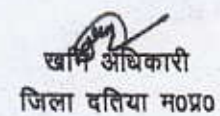 खनि अधिकारी
जिला दतिया म०प्र०